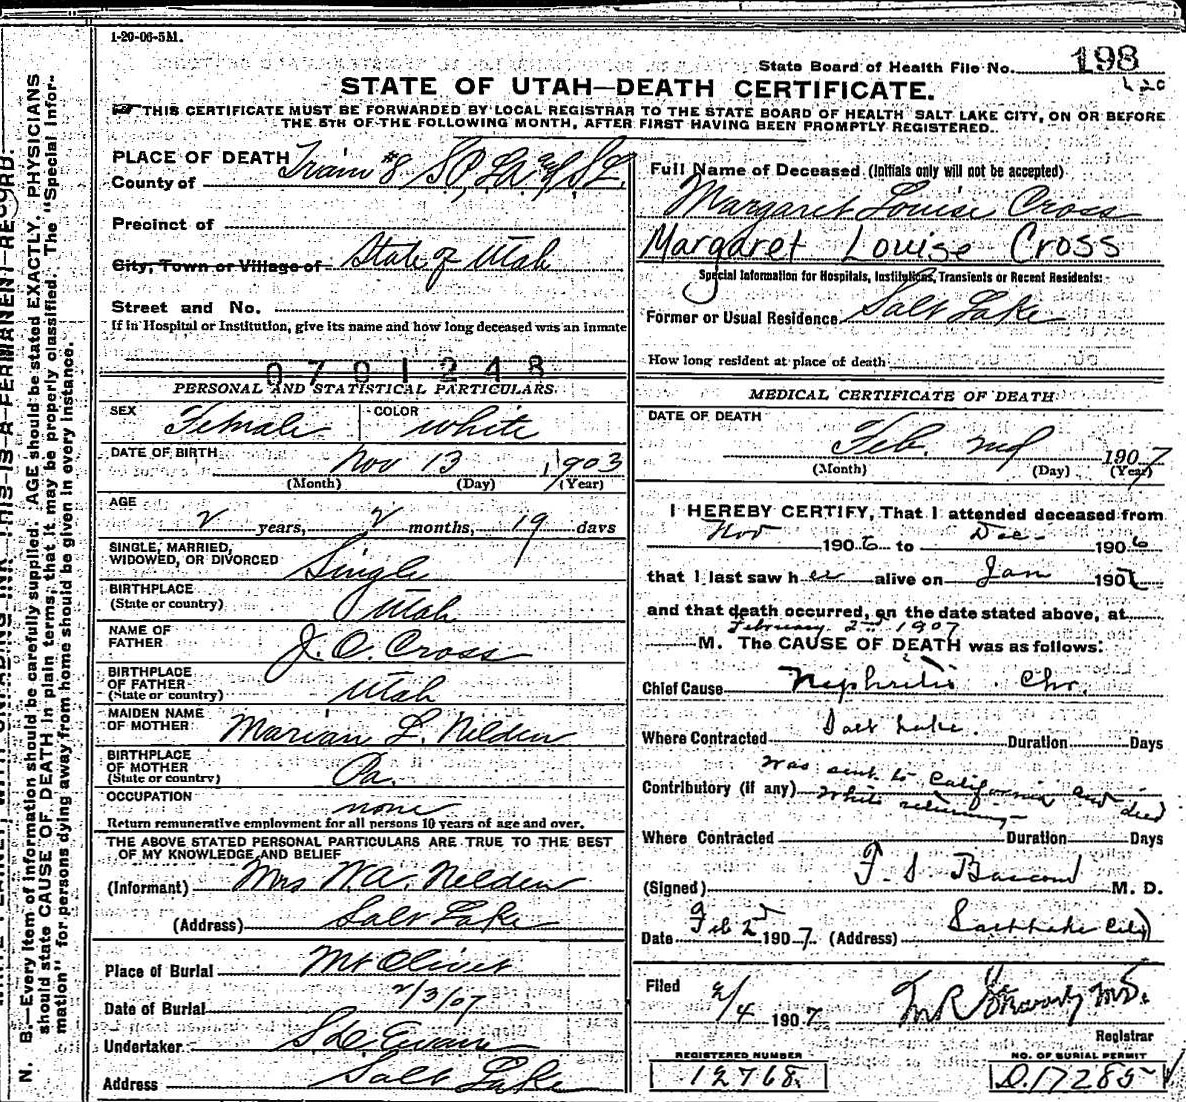 1-20-06-5M.
State Board of Health File No. 198
STATE OF UTAH—DEATH CERTIFICATE.
THIS CERTIFICATE MUST BE FORWARDED BY LOCAL REGISTRAR TO THE STATE BOARD OF HEALTH SALT LAKE CITY, ON OR BEFORE
THE 5TH OF THE FOLLOWING MONTH, AFTER FIRST HAVING BEEN PROMPTLY REGISTERED.
PLACE OF DEATH Train #8 S.P., L.A. & S.L.
County of
Precinct of
City, Town or Village of State of Utah
Street and No.
If in Hospital or Institution, give its name and how long deceased was an inmate
0701248
PERSONAL AND STATISTICAL PARTICULARS
SEX Female COLOR white
DATE OF BIRTH Nov 13 1903
(Month) (Day) (Year)
AGE
2 years, 2 months, 19 days
SINGLE, MARRIED,
WIDOWED, OR DIVORCED Single
BIRTHPLACE
(State or country) Utah
NAME OF
FATHER J. O. Cross
BIRTHPLACE
OF FATHER
(State or country) Utah
MAIDEN NAME
OF MOTHER Marian L. Nelden
BIRTHPLACE
OF MOTHER
(State or country) Pa.
OCCUPATION none
Return remunerative employment for all persons 10 years of age and over.
THE ABOVE STATED PERSONAL PARTICULARS ARE TRUE TO THE BEST
OF MY KNOWLEDGE AND BELIEF
(Informant) Mrs W. A. Nelden
(Address) Salt Lake
Place of Burial Mt Olivet
Date of Burial 2/3/07
Undertaker S. D. Evans
Address Salt Lake
Full Name of Deceased (Initials only will not be accepted)
Margaret Louise Cross
Margaret Louise Cross
Special Information for Hospitals, Institutions, Transients or Recent Residents:
Former or Usual Residence Salt Lake
How long resident at place of death
MEDICAL CERTIFICATE OF DEATH
DATE OF DEATH
Feb. 2nd 1907
(Month) (Day) (Year)
I HEREBY CERTIFY, That I attended deceased from
Nov 1906 to Dec 1906
that I last saw her alive on Jan 1907
and that death occurred, on the date stated above, at
February 2nd 1907
M. The CAUSE OF DEATH was as follows:
Chief Cause Nephritis Chr.
Where Contracted Salt Lake. Duration Days
Was sent to California and died
Contributory (if any) while returning
Where Contracted Duration Days
(Signed) F. S. Bascom M. D.
Date Feb 2d 1907 (Address) Salt Lake City
Filed 2/4 1907 M. D.
Registrar
REGISTERED NUMBER
12768.
NO. OF BURIAL PERMIT
D.17285
N. B.—Every item of information should be carefully supplied. AGE should be stated EXACTLY. PHYSICIANS
should state CAUSE OF DEATH in plain terms, that it may be properly classified. The "Special Infor-
mation" for persons dying away from home should be given in every instance.